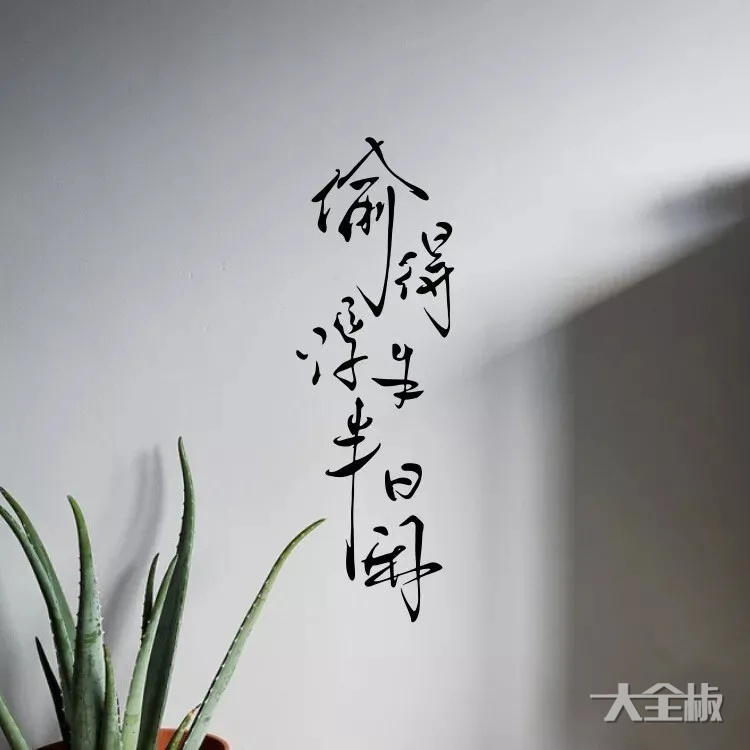 偷得浮生半日闲
大全椒